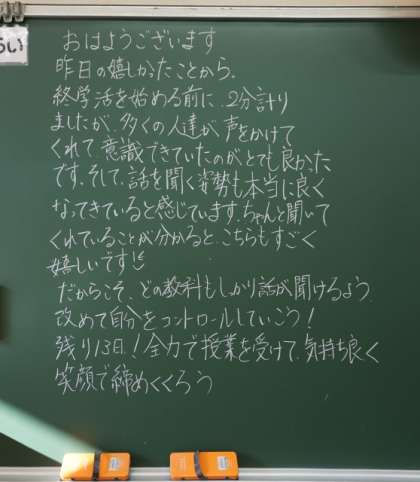 らい
おはようございます
昨日の嬉しかったことから。
終学活を始める前に、2分計り
ましたが、多くの人達が声をかけて
くれて意識できていたのがとても良かった
です。そして、話を聞く姿勢も本当に良く
なってきていると感じています。ちゃんと聞いて
くれていることが分かると、こちらもすごく
嬉しいです!!
だからこそ、どの教科もしっかり話が聞けるよう、
改めて自分をコントロールしていこう!
残り13日!全力で授業を受けて、気持ち良く
笑顔で締めくくろう